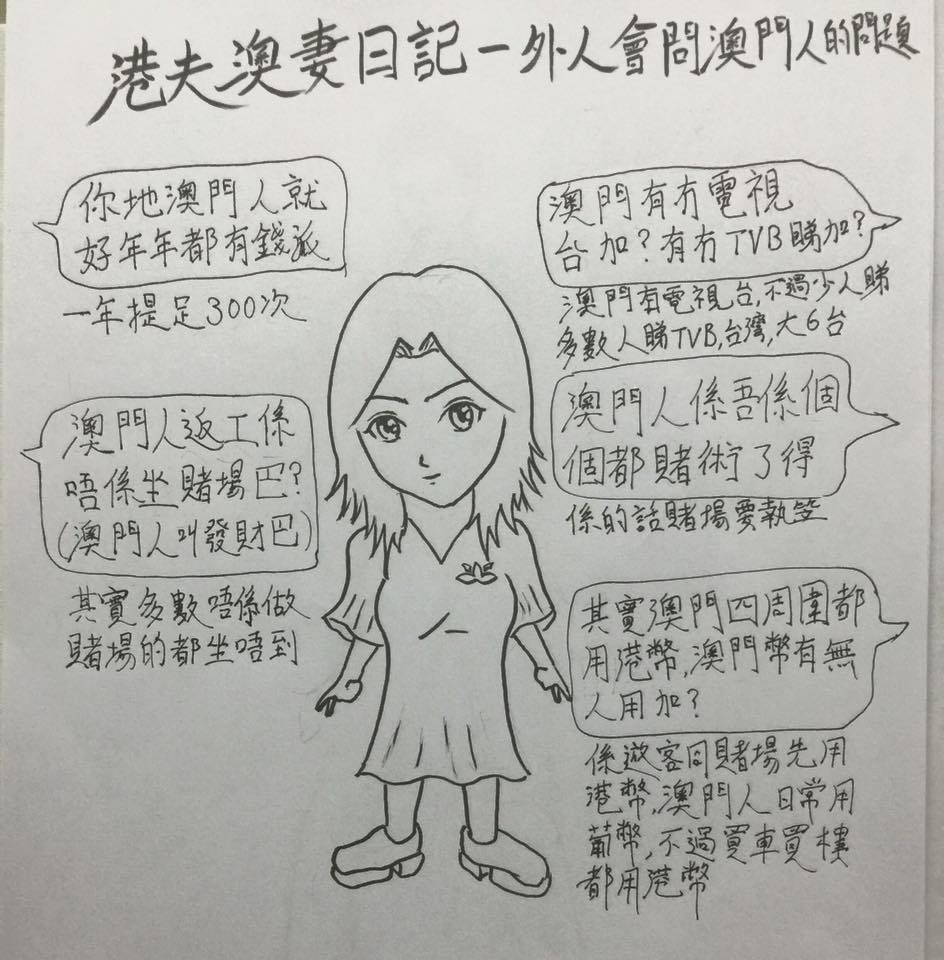 港夫澳妻日記一外人會問澳門人的問題
你地澳門人就
好年年都有錢派
一年提足300次
澳門人返工係
唔係坐賭場巴?
(澳門人叫發財巴)
其實多數唔係做
賭場的都坐唔到
澳門有冇電視
台加?有冇TVB睇加?
澳門有電視台,不過少人睇
多數人睇TVB,台灣,大6台
澳門人係吾係個
個都賭術了得
係的話賭場要執笠
其實澳門四周圍都
用港幣,澳門幣有無
人用加?
係遊客同賭場先用
港幣,澳門人日常用
葡幣,不過買車買樓
都用港幣